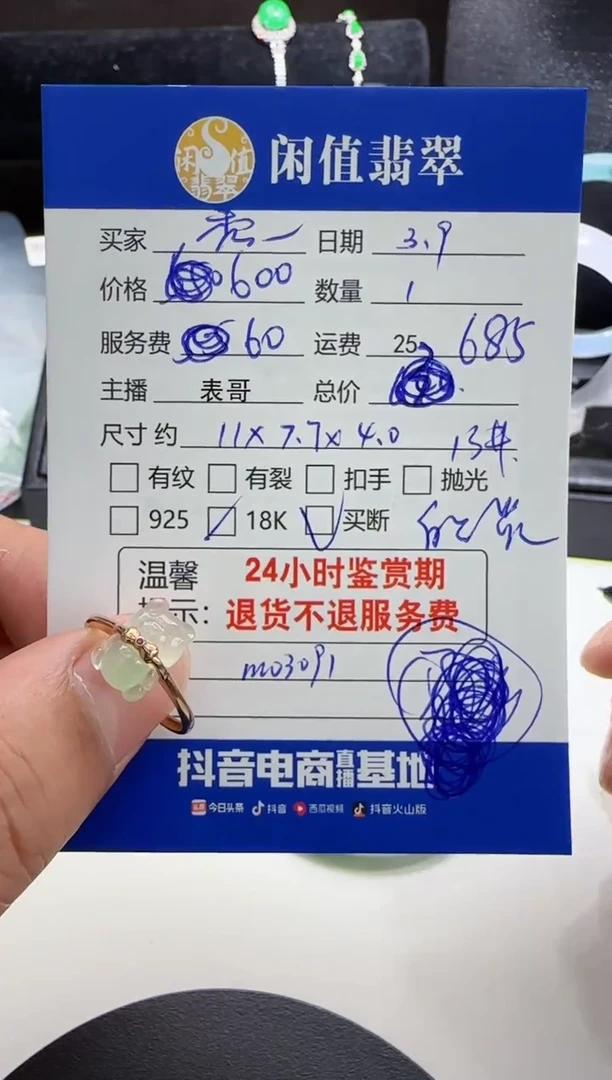 闲值翡翠
闲值翡翠
买家 日期 3.9
价格 600 数量 1
服务费 60 运费 25 685
主播 表哥 总价
尺寸 约 11X7.7X4.0 13#
有纹 有裂 扣手 抛光
925 18K 买断
温馨 24小时鉴赏期
提示：退货不退服务费
m03091
抖音电商直播基地
头条 今日头条 抖音 西瓜视频 抖音火山版